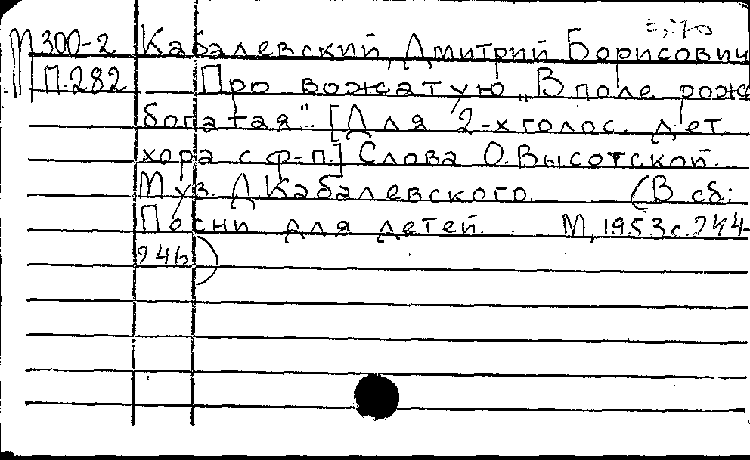 М300-2 Кабалевский, Дмитрий Борисович
П.282 Про вожатую „В поле рожь
богатая". [Для 2-х голос. дет.
хора с ф-п.] Слова О. Высотской.
Муз. Д. Кабалевского. (В сб:
Песни для детей. М, 1953 с. 244-
246)